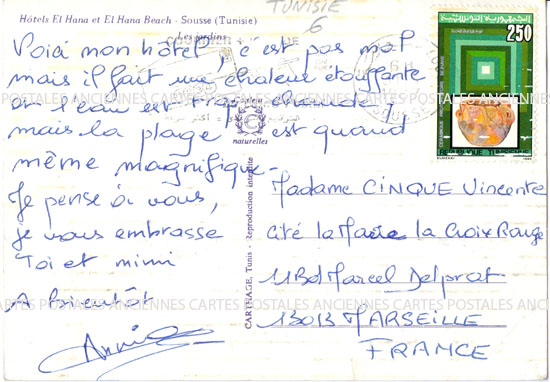 Hôtels El Hana et El Hana Beach - Sousse (Tunisie)
Les jardins
TUNISIE
6
Voici mon hôtel, c'est pas mal
mais il fait une chaleur étouffante
l'eau est trop chaude,
mais la plage est quand
même magnifique.
Je pense à vous,
je vous embrasse
Toi et mimi
A bientôt
Annie
naturelles
CARTEAGE, Tunis - Reproduction interdite
250
REPUBLIQUE TUNISIENNE
Madame CINQUE Vincente
cité la la Croix Rouge
11 Bd Marcel Delprat
13013 MARSEILLE
FRANCE
POSTALES ANCIENNES CARTES POSTALES ANCIENNES CARTES POSTALES ANCIENNES
CARTES POSTALES ANCIENNES CARTES POSTALES ANCIENNES CARTES POSTALES